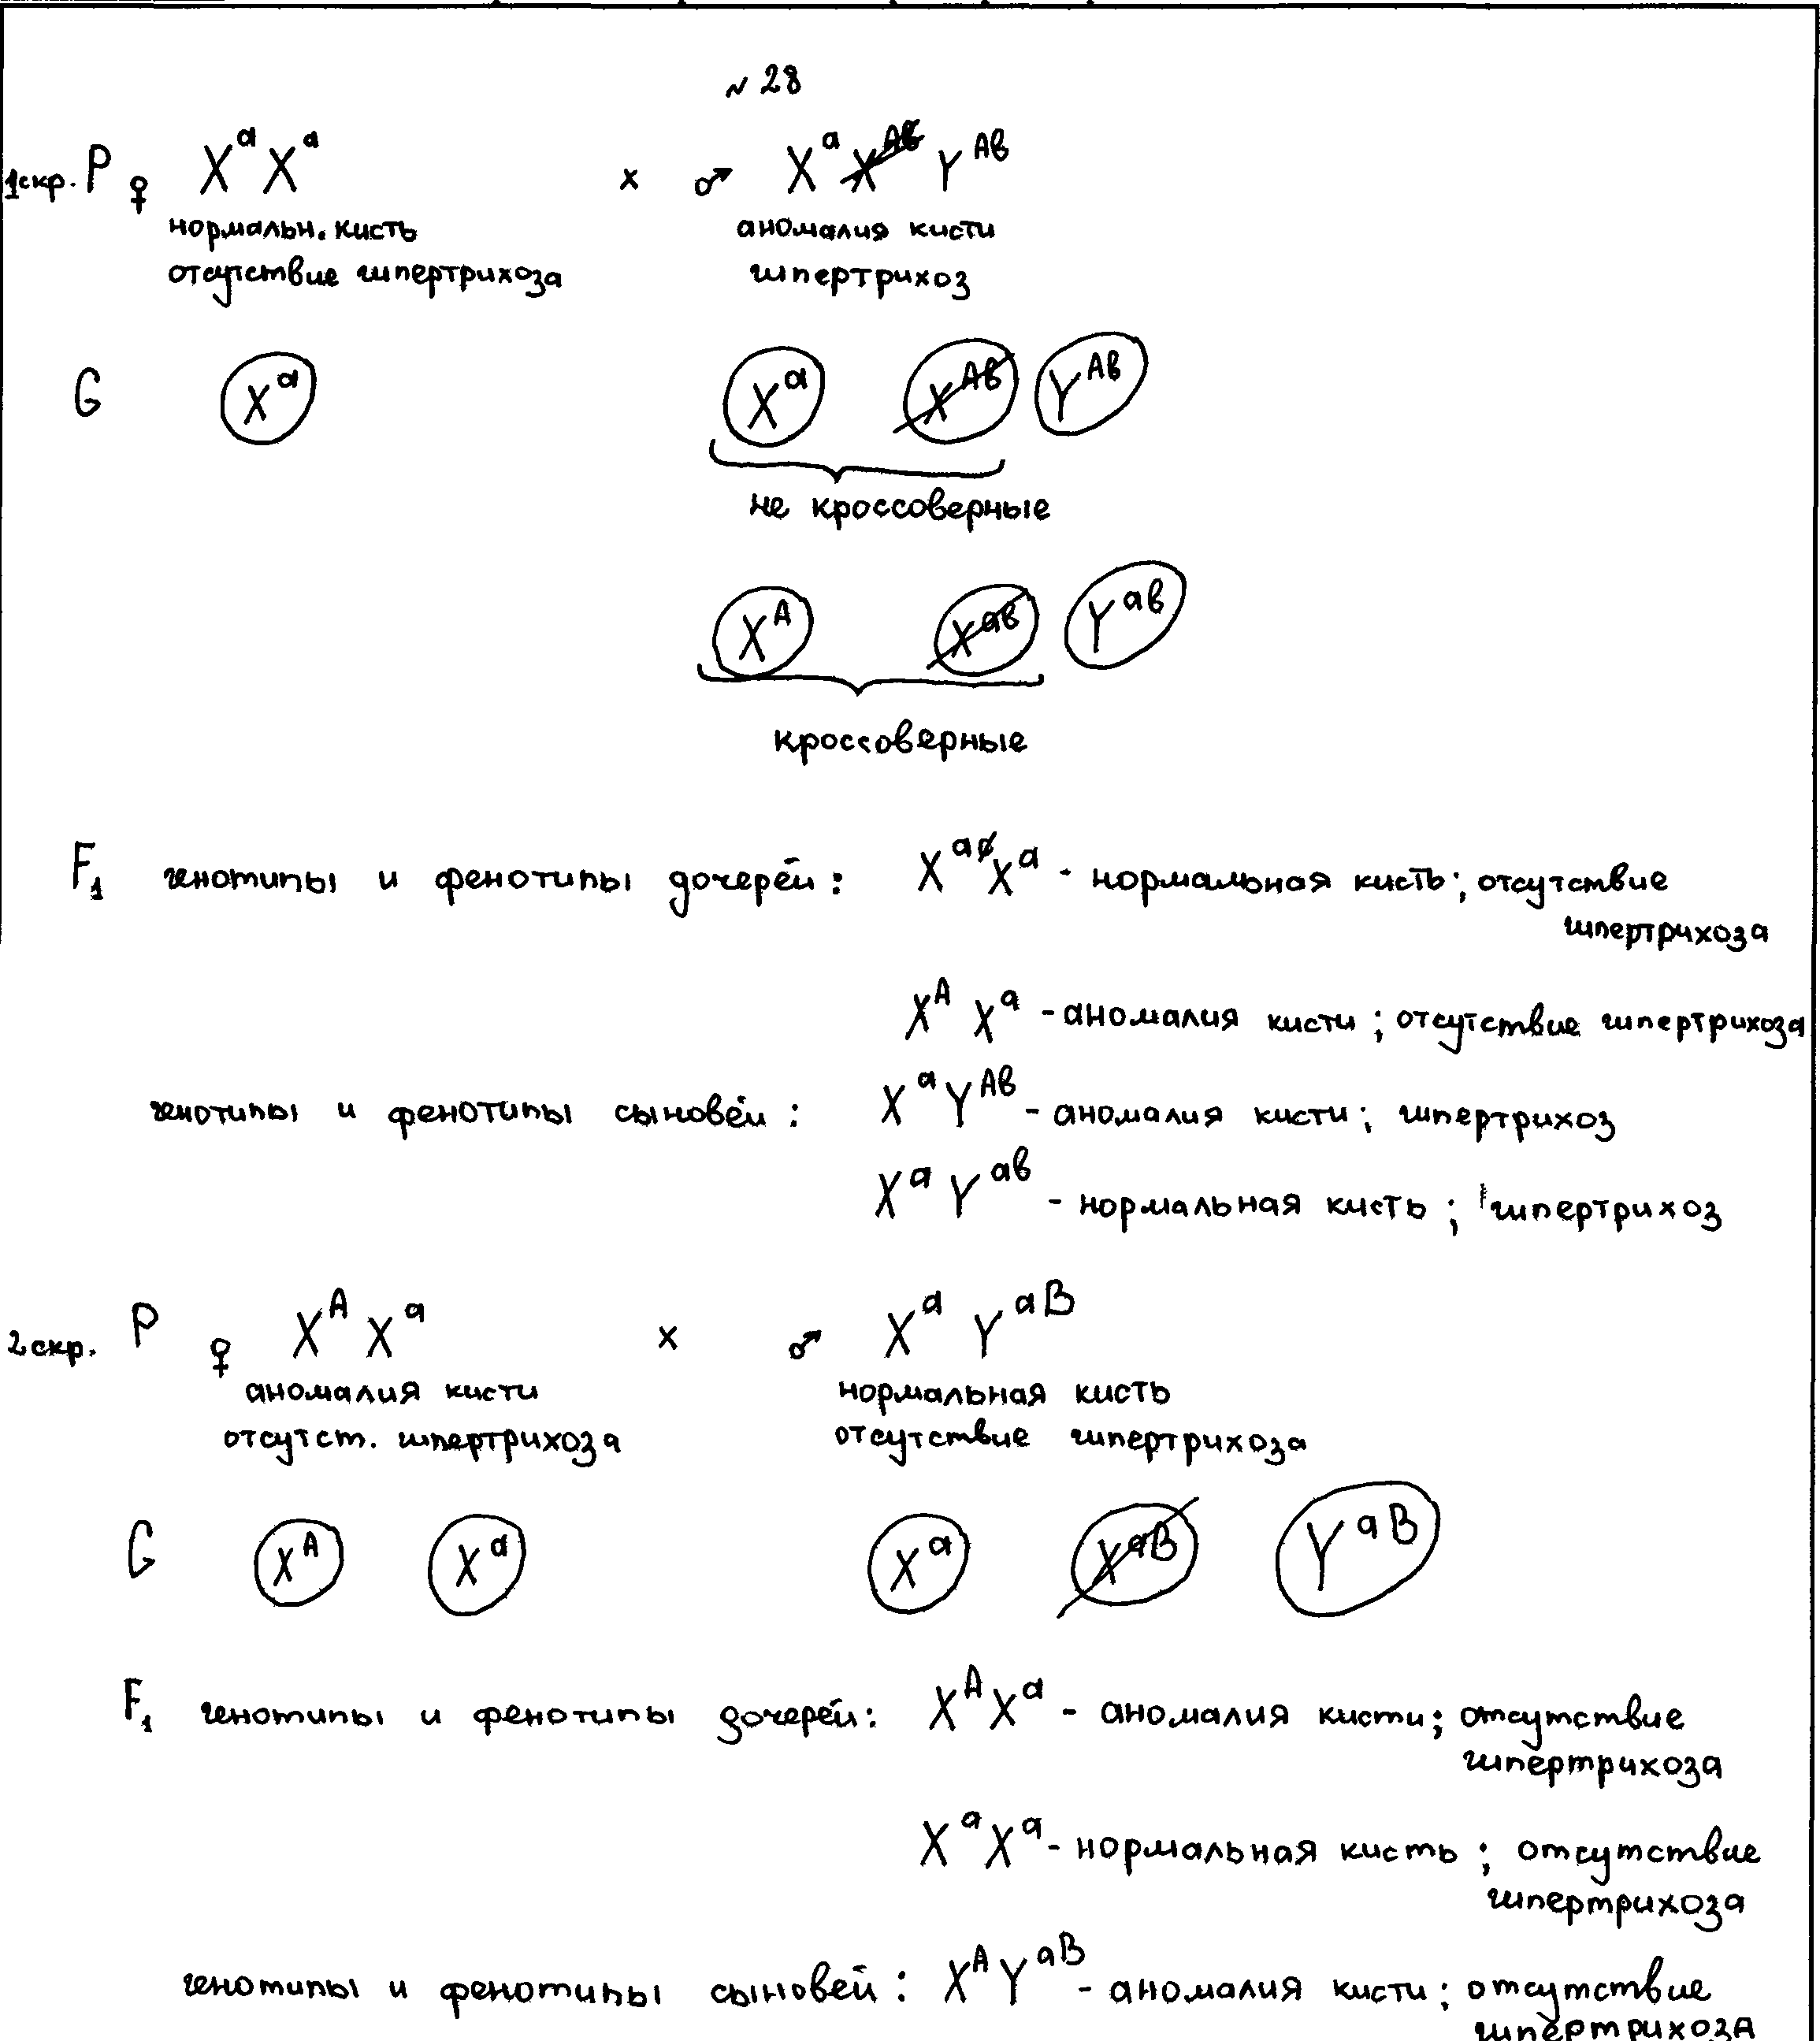 № 28
1 скр. P ♀ XᵃXᵃ × ♂ Xᵃ X^Aв Y^Aв
нормальн. кисть аномалия кисти
отсутствие гипертрихоза гипертрихоз
G Xᵃ Xᵃ X^Aв Y^Aв
не кроссоверные
X^A X^aв Y^aв
кроссоверные
F₁ генотипы и фенотипы дочерей: XᵃXᵃ - нормальная кисть; отсутствие
гипертрихоза
X^A Xᵃ - аномалия кисти; отсутствие гипертрихоза
генотипы и фенотипы сыновей: XᵃY^Aв - аномалия кисти; гипертрихоз
XᵃY^aв - нормальная кисть; гипертрихоз
2 скр. P ♀ X^A Xᵃ × ♂ Xᵃ Y^aB
аномалия кисти нормальная кисть
отсутст. гипертрихоза отсутствие гипертрихоза
G X^A Xᵃ Xᵃ X^aB Y^aB
F₁ генотипы и фенотипы дочерей: X^A Xᵃ - аномалия кисти; отсутствие
гипертрихоза
XᵃXᵃ - нормальная кисть; отсутствие
гипертрихоза
генотипы и фенотипы сыновей: X^A Y^aB - аномалия кисти; отсутствие
гипертрихоза